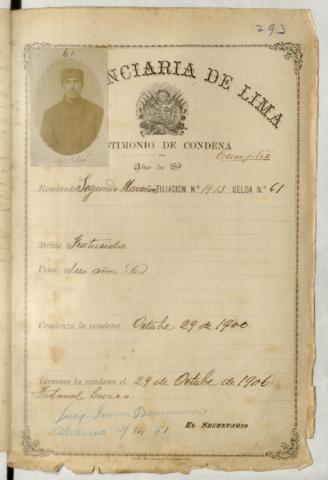 293
61
NCIARIA DE LIMA
STIMONIO DE CONDENA
Cumplió
Año de 189
Rematado Segundo FILIACION N.º 1913 CELDA N.º 61
Delito
Pena seis años (6)
Comienza la condena Octubre 29 de 1900.
Termina la condena el 29 de Octubre de 1906.
Tribunal Cuzco
Juez
EL SECRETARIO